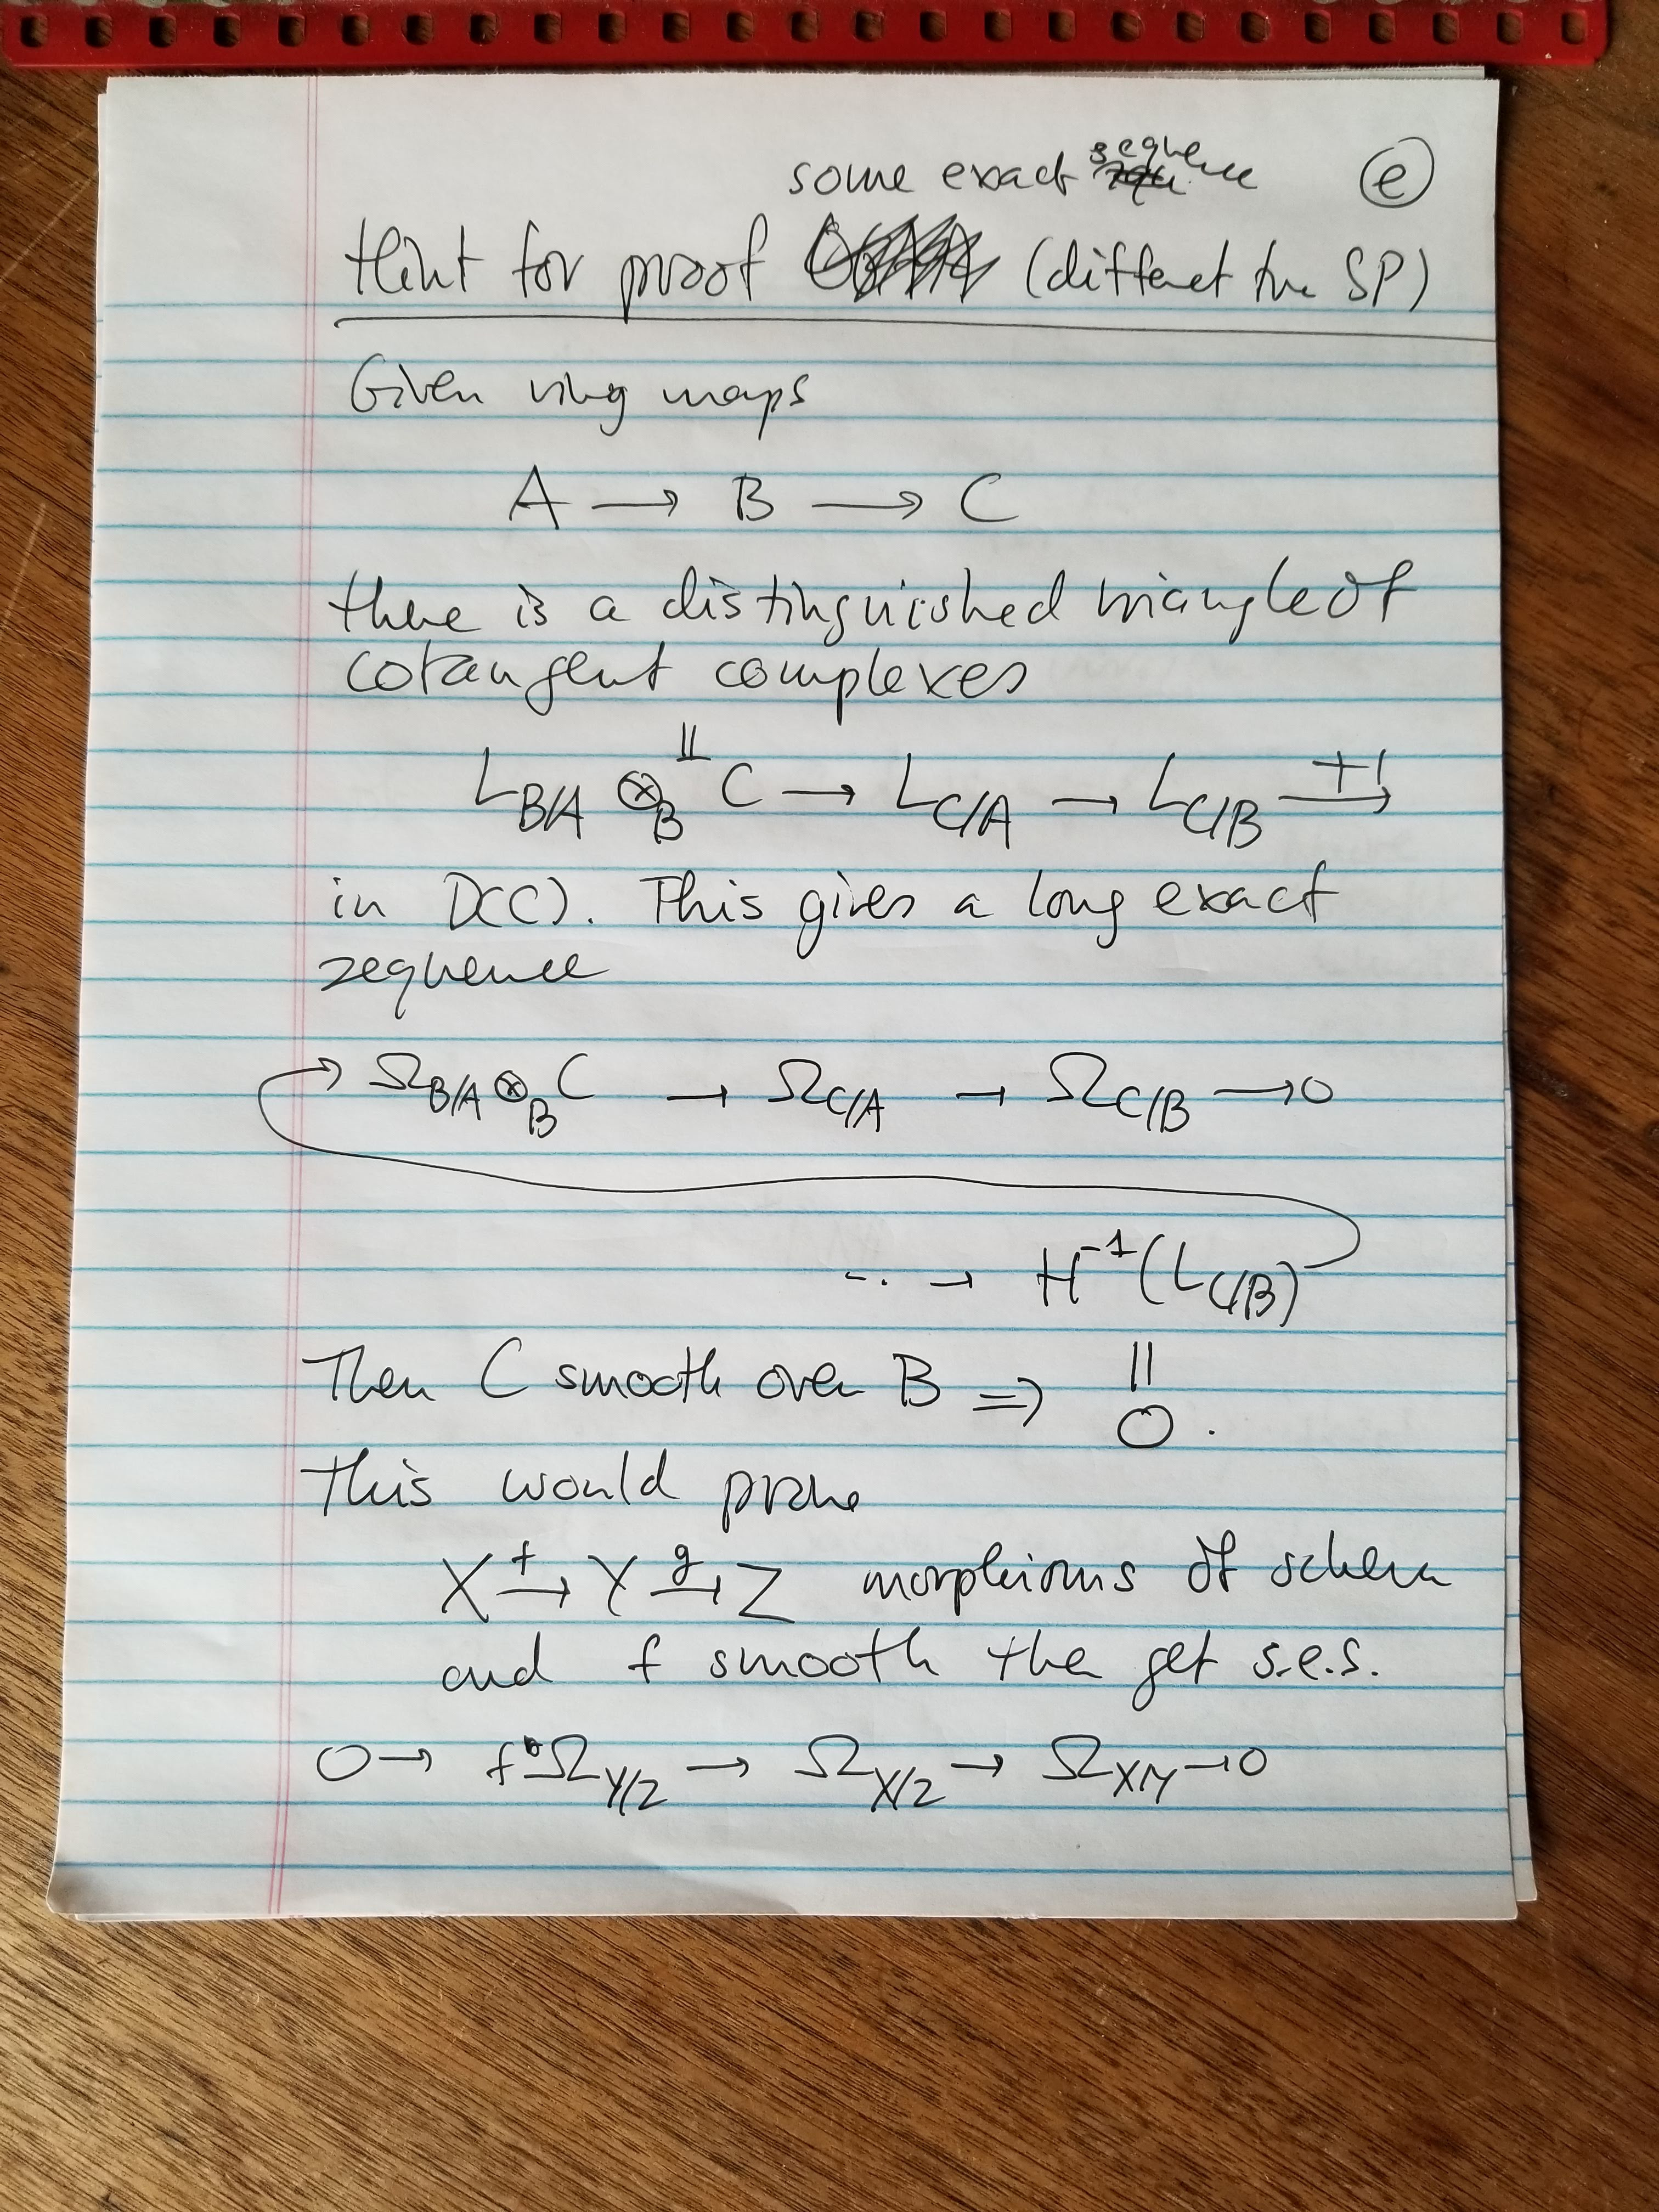 some exact sequence ⓔ
Hint for proof (differet tha SP)
Given ring maps
A → B → C
there is a distinguished triangle of
cotangent complexes
L_{B/A} ⊗_B^𝕃 C → L_{C/A} → L_{C/B} →^{+1}
in D(C). This gives a long exact
sequence
→ Ω_{B/A} ⊗_B C → Ω_{C/A} → Ω_{C/B} → 0
... → H^{-1}(L_{C/B})
Then C smooth over B ⇒ ||
0.
This would prove
X →^f Y →^g Z morphisms of schemes
and f smooth the get s.e.s.
0 → f^*Ω_{Y/Z} → Ω_{X/Z} → Ω_{X/Y} → 0